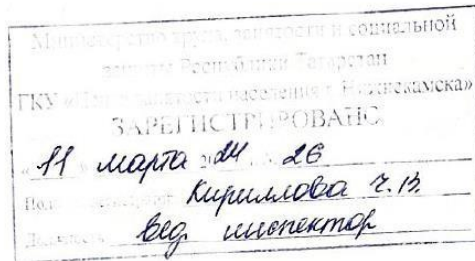 Министерство труда, занятости и социальной
защиты Республики Татарстан
ГКУ «Центр занятости населения г. Нижнекамска»
ЗАРЕГИСТРИРОВАНО
«11» марта 2024 26
Кириллова Ч.В.
Должность вед инспектор